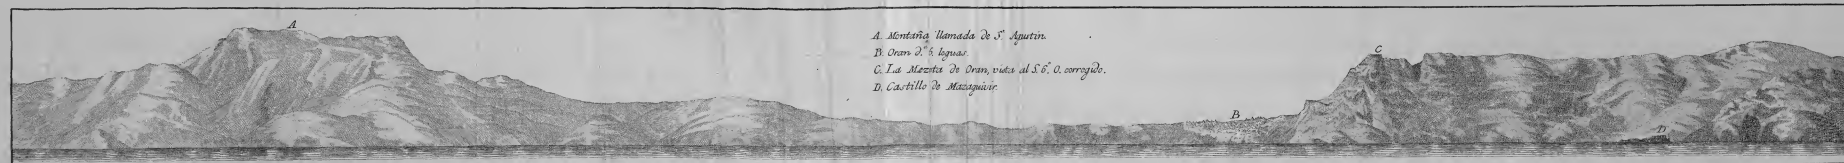 A
A. Montaña llamada de S.ⁿ Agustin.
B. Oran d.ª 6. leguas.
C. La Mezeta de Oran, vista al S. 6.º O. corregido.
D. Castillo de Mazaquivir.
C
B
D